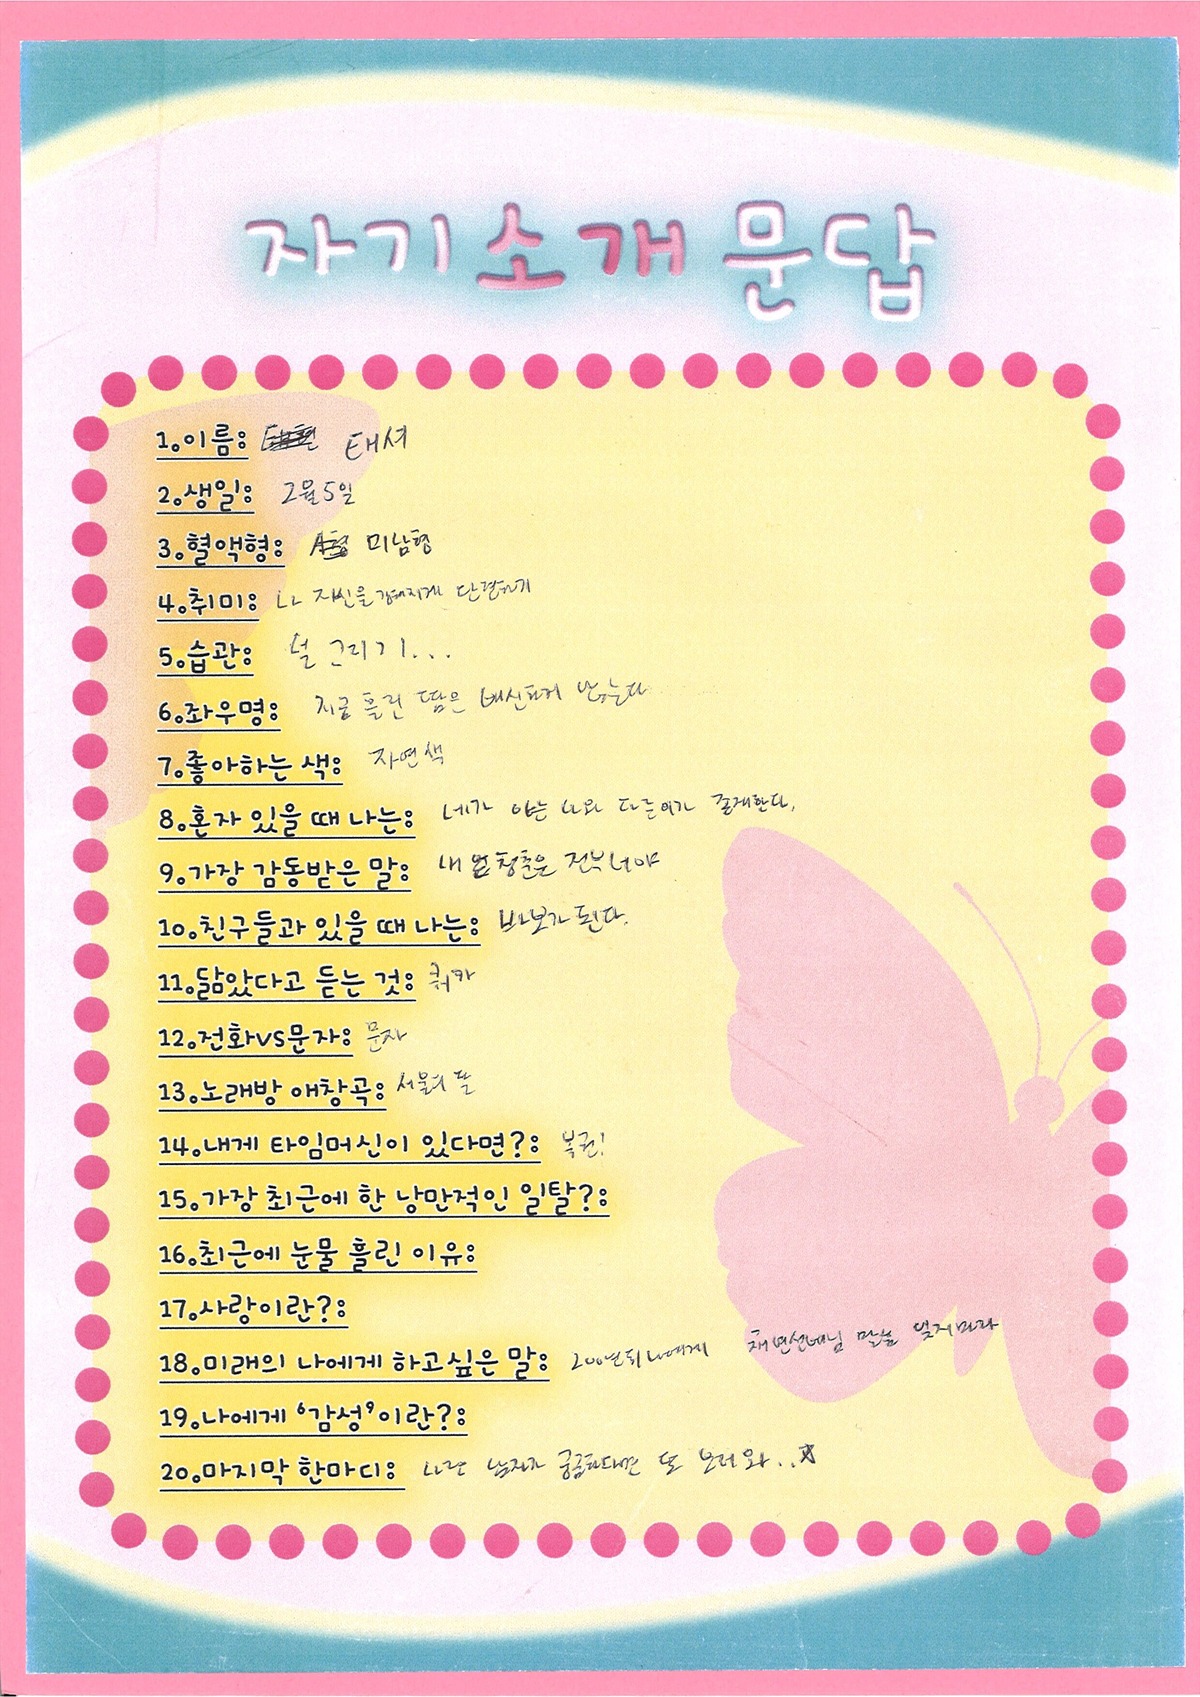 자기소개 문답
1.이름: 태셔
2.생일: 2월5일
3.혈액형: A형 미남형
4.취미: 나 자신을 강하게 단련하기
5.습관: 셜 그리기...
6.좌우명: 지금 흘린 땀은 배신하지 않는다
7.좋아하는 색: 자연색
8.혼자 있을 때 나는: 네가 아는 나와 다른이가 존재한다.
9.가장 감동받은 말: 내 청춘은 전부 너야
10.친구들과 있을 때 나는: 바보가 된다.
11.닮았다고 듣는 것: 쿼카
12.전화vs문자: 문자
13.노래방 애창곡: 서울의 달
14.내게 타임머신이 있다면?: 복권!
15.가장 최근에 한 낭만적인 일탈?:
16.최근에 눈물 흘린 이유:
17.사랑이란?:
18.미래의 나에게 하고싶은 말: 200년뒤 나에게 말을 잊지마라
19.나에게 '감성'이란?:
20.마지막 한마디: 나란 남자가 궁금하다면 또 보러 와..☆